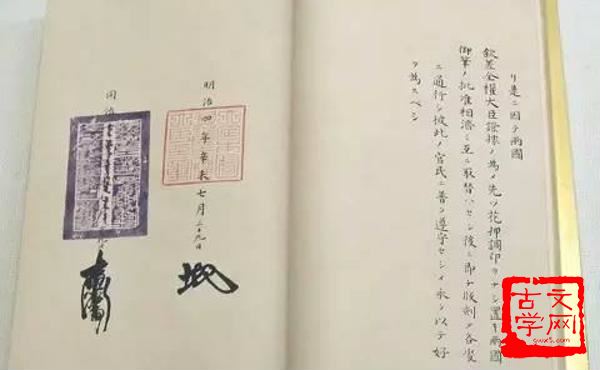 リ是ニ因テ兩國
欽差全權大臣證據ノ為メ先ツ花押調印ヲナシ置キ兩國
御筆ノ批准相濟ミ互ニ取替ハセシ後ニ即チ版刻シ各處
ニ通行シ彼此ノ官民ニ普ク遵守セシメ永ク以テ好
ヲ為スベシ
明治四年辛未七月
九日
同治
古文
学网